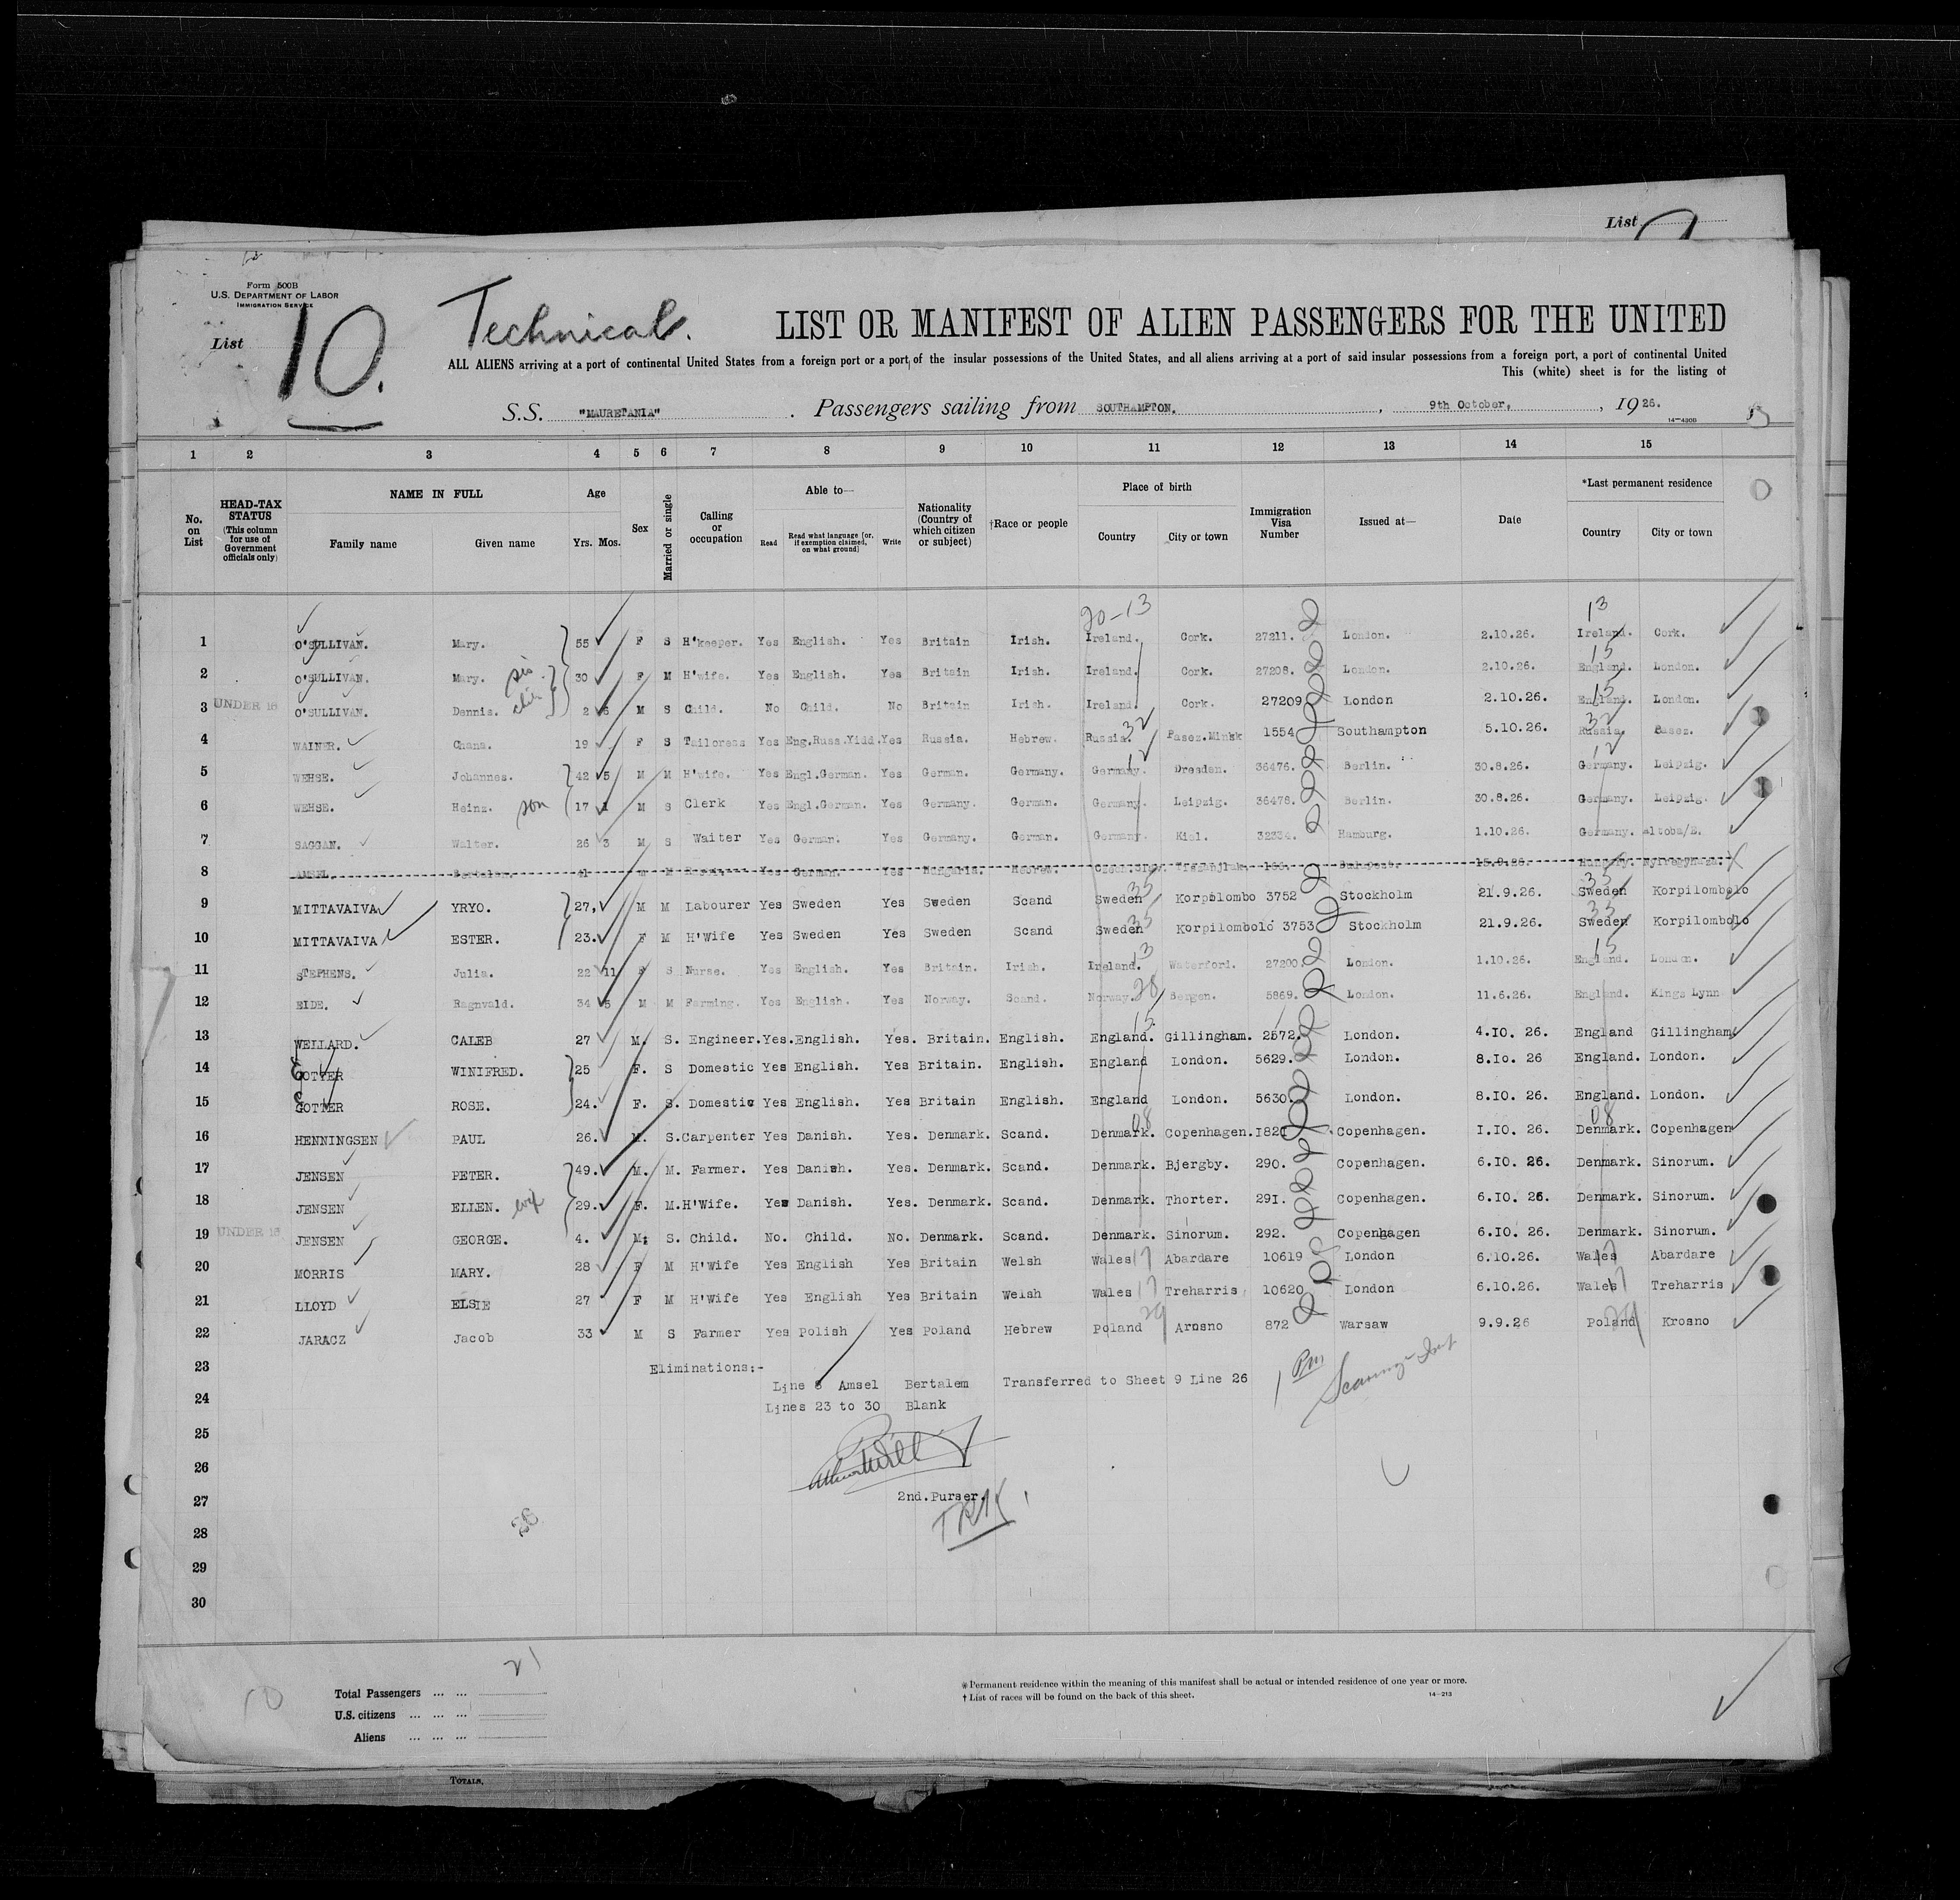 List
Form 500B
U.S. DEPARTMENT OF LABOR
IMMIGRATION SERVICE
List 10.
Technical.
LIST OR MANIFEST OF ALIEN PASSENGERS FOR THE UNITED
ALL ALIENS arriving at a port of continental United States from a foreign port or a port of the insular possessions of the United States, and all aliens arriving at a port of said insular possessions from a foreign port, a port of continental United
This (white) sheet is for the listing of
S.S. "MAURETANIA" . Passengers sailing from SOUTHAMPTON. , 9th October, , 1926.
14—420B
1 2 3 4 5 6 7 8 9 10 11 12 13 14 15
No. on List
HEAD-TAX STATUS (This column for use of Government officials only)
NAME IN FULL
Family name Given name
Age
Yrs. Mos.
Sex
Married or single
Calling or occupation
Able to—
Read
Read what language [or, if exemption claimed, on what ground]
Write
Nationality (Country of which citizen or subject)
†Race or people
Place of birth
Country City or town
Immigration Visa Number
Issued at—
Date
*Last permanent residence
Country City or town
20-13 13
1 O'SULLIVAN. Mary. 55 F S H'keeper. Yes English. Yes Britain Irish. Ireland. Cork. 27211. London. 2.10.26. Ireland. Cork.
15
2 O'SULLIVAN. Mary. sis 30 F M H'wife. Yes English. Yes Britain Irish. Ireland. Cork. 27208. London. 2.10.26. England. London.
15
3 UNDER 16 O'SULLIVAN. Dennis. 2 6 M S Child. No Child. No Britain Irish. Ireland. Cork. 27209 London 2.10.26. England. London.
32 32
4 WAINER. Chana. 19 F S Tailoress Yes Eng.Russ.Yidd. Yes Russia. Hebrew. Russia. Pasez.Minsk 1554 Southampton 5.10.26. Russia. Pasez.
12 12
5 WEHSE. Johannes. 42 5 M M H'wife. Yes Engl.German. Yes German. Germany. Germany. Dresden. 36476. Berlin. 30.8.26. Germany. Leipzig.
6 WEHSE. Heinz. son 17 1 M S Clerk Yes Engl.German. Yes Germany. German. Germany. Leipzig. 36478. Berlin. 30.8.26. Germany. Leipzig.
7 SAGGAN. Walter. 26 3 M S Waiter Yes German. Yes Germany. German. Germany. Kiel. 32334. Hamburg. 1.10.26. Germany. altoba/E.
8 AMSEL. 41 M M Yes German. Yes Hungaria. Hebrew. 166. Budapest. 15.9.26. Hungary.
35 35
9 MITTAVAIVA YRYO. 27, M M Labourer Yes Sweden Yes Sweden Scand Sweden Korpolombo 3752 Stockholm 21.9.26. Sweden Korpilombolo
35 35
10 MITTAVAIVA ESTER. 23. F M H'Wife Yes Sweden Yes Sweden Scand Sweden Korpilombolo 3753 Stockholm 21.9.26. Sweden Korpilombolo
13 15
11 STEPHENS. Julia. 22 11 F S Nurse. Yes English. Yes Britain. Irish. Ireland. Waterford. 27200 London. 1.10.26. England. London.
28
12 EIDE. Ragnvald. 34 5 M M Farming. Yes English. Yes Norway. Scand. Norway. Bergen. 5869. London. 11.6.26. England. Kings Lynn
15
13 WELLARD. CALEB 27 M. S. Engineer. Yes. English. Yes. Britain. English. England. Gillingham. 2572. London. 4.IO. 26. England Gillingham
14 COTTER WINIFRED. 25 F. S Domestic Yes English. Yes Britain. English. England London. 5629. London. 8.Io. 26 England. London.
15 COTTER ROSE. 24. F. S. Domestic Yes English. Yes Britain English. England London. 5630. London. 8.IO. 26. England. London.
08 08
16 HENNINGSEN PAUL 26. M. S. Carpenter Yes Danish. Yes. Denmark. Scand. Denmark. Copenhagen. Copenhagen. I.IO. 26. Denmark. Copenhagen
17 JENSEN PETER. 49. M. M. Farmer. Yes Danish. Yes. Denmark. Scand. Denmark. Bjergby. 290. Copenhagen. 6.IO. 26. Denmark. Sinorum.
18 JENSEN ELLEN. wif 29. F. M. H'Wife. Yes Danish. Yes. Denmark. Scand. Denmark. Thorter. 29I. Copenhagen. 6.IO. 26. Denmark. Sinorum.
19 UNDER 16 JENSEN GEORGE. 4. M. S. Child. No. Child. No. Denmark. Scand. Denmark. Sinorum. 292. Copenhagen 6.IO. 26. Denmark. Sinorum.
20 MORRIS MARY. 28 F M H'Wife Yes English Yes Britain Welsh Wales 17 Abardare 10619 London 6.10.26. Wales 17 Abardare
21 LLOYD ELSIE 27 F M H'Wife Yes English Yes Britain Welsh Wales 17 Treharris 10620 London 6.10.26. Wales 17 Treharris
29 29
22 JARACZ Jacob 33 M S Farmer Yes Polish Yes Poland Hebrew Poland Arosno 872 Warsaw 9.9.26 Poland Krosno
23 Eliminations:-
Line 8 Amsel Bertalem Transferred to Sheet 9 Line 26
24 Lines 23 to 30 Blank
25
26
27 2nd.Purser.
28
29
30
26
21
10
Total Passengers ... ...
U.S. citizens ... ... ...
Aliens ... ... ...
* Permanent residence within the meaning of this manifest shall be actual or intended residence of one year or more.
† List of races will be found on the back of this sheet. 14—213
TOTALS.